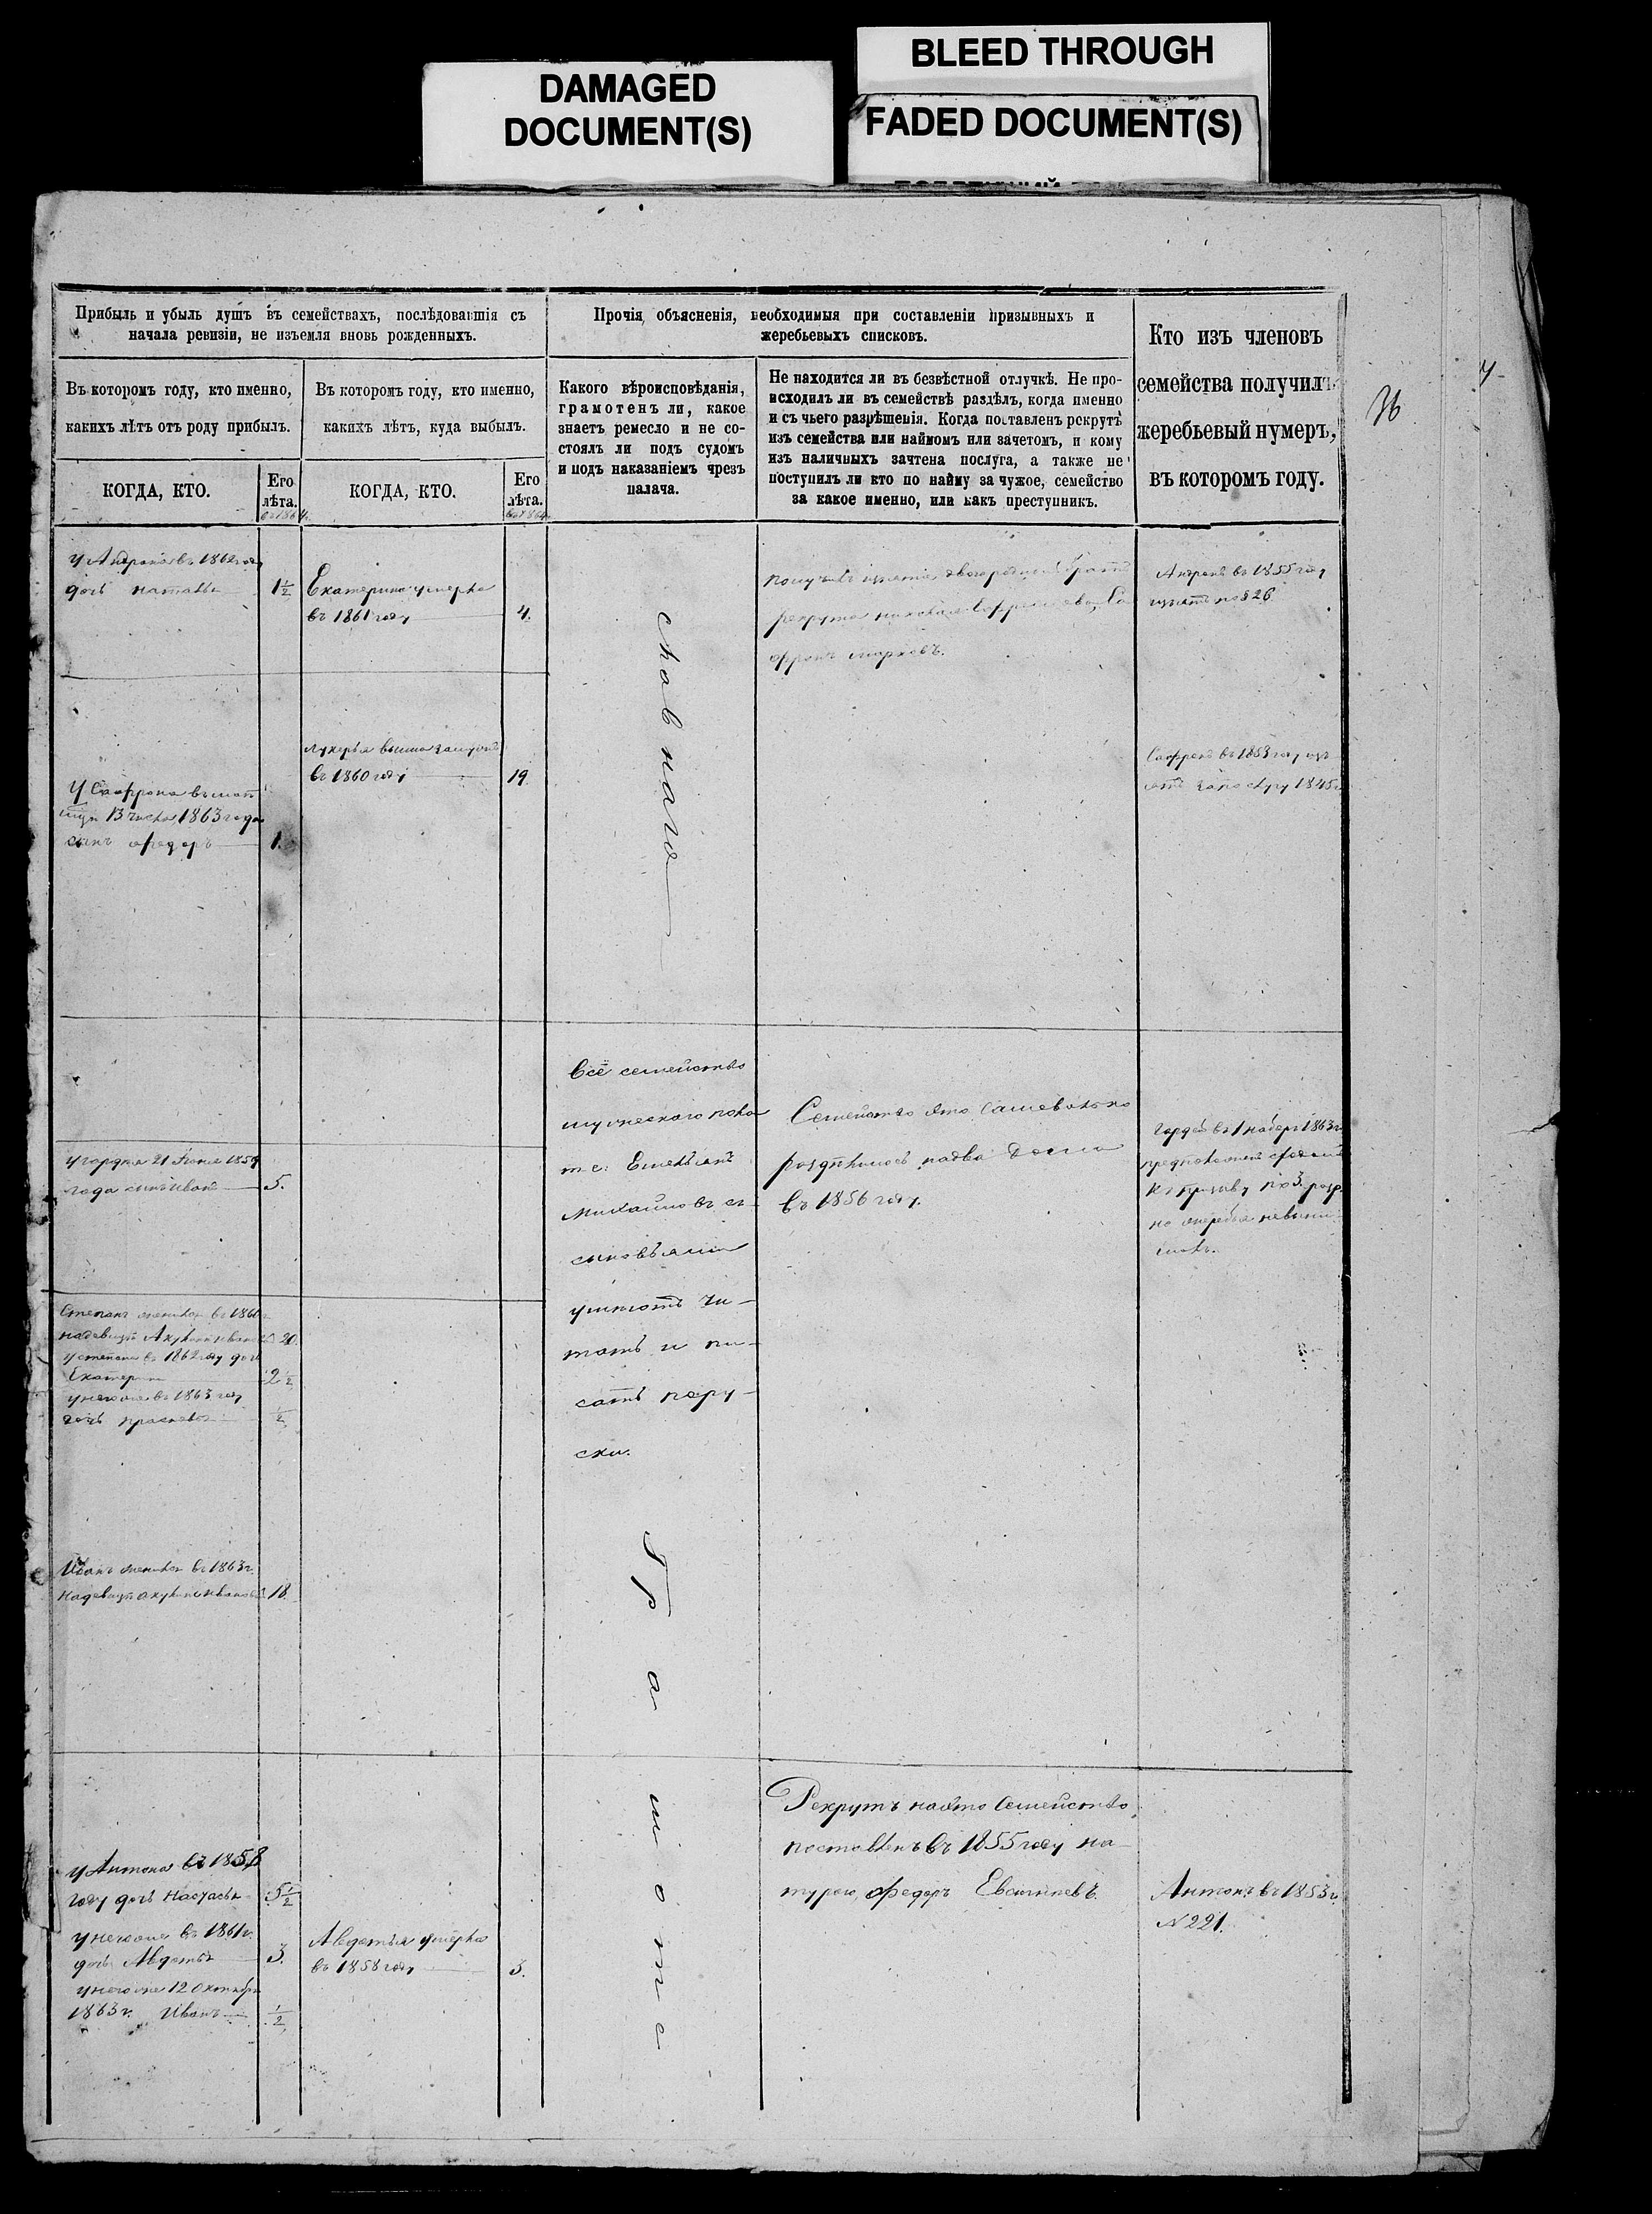 DAMAGED
DOCUMENT(S)
BLEED THROUGH
FADED DOCUMENT(S)
Прибыль и убыль душъ въ семействахъ, послѣдовавшія съ
начала ревизіи, не изъемля вновь рожденныхъ.
Прочія объясненія, необходимыя при составленіи призывныхъ и
жеребьевыхъ списковъ.
Кто изъ членовъ
семейства получилъ
жеребьевый нумеръ,
въ которомъ году.
36
Въ которомъ году, кто именно,
какихъ лѣтъ отъ роду прибылъ.
Въ которомъ году, кто именно,
какихъ лѣтъ, куда выбылъ.
Какого вѣроисповѣданія,
грамотенъ ли, какое
знаетъ ремесло и не со-
стоялъ ли подъ судомъ
и подъ наказаніемъ чрезъ
палача.
Не находится ли въ безвѣстной отлучкѣ. Не про-
исходилъ ли въ семействѣ раздѣлъ, когда именно
и съ чьего разрѣшенія. Когда поставленъ рекрутъ
изъ семейства или наймомъ или зачетомъ, и кому
изъ наличныхъ зачтена послуга, а также не
поступилъ ли кто по найму за чужое, семейство
за какое именно, или какъ преступникъ.
КОГДА, КТО.
Его
лѣта.
въ 1864.
КОГДА, КТО.
Его
лѣта.
въ 1864.
у Андрона въ 1862 году
дочь наталья 1½
Екатерина умерла
въ 1861 году 4.
славнаго
двоюродный братъ
рекрута
марковъ.
въ 1855 году
изъятъ по § 26
лукерья вышла замужъ
въ 1860 году 19.
У Сафрона
13 числа 1863 года
сынъ федоръ 1.
Сафронъ въ 1853 году изъ
1845
Всё семейство
мужескаго пола
т.е. Емельянъ
Михайловъ съ
сыновьями
умѣютъ чи-
тать и пи-
сать пору-
ски.
Семейство это самовольно
раздѣлилось на два дома
въ 1856 году.
Гордей въ 1 наборъ 1863 г
къ призыву по 3 разр.
но жеребья невыни
малъ.
у гордея 21 Июня 1859
года сынъ иванъ 5.
Степанъ женился въ 1860 г
надевицѣ Акулинѣ 20.
у степана въ 1862 году дочь
Екатерина 2½
у негоже въ 1863 году
дочь прасковья ½
Иванъ женился въ 1863 г.
надевицѣ акулинѣ ивановой 18.
Грамоте
Рекрутъ на это семейство
поставленъ въ 1855 году на-
турою, федоръ
Антонъ въ 1853 г.
N 221.
у Антона въ 1858
году дочь настасья 5½
у негоже въ 1861 г.
дочь Авдотья 3.
у негоже 12 октября
1863 г. Иванъ ½
Авдотья умерла
въ 1858 году 3.